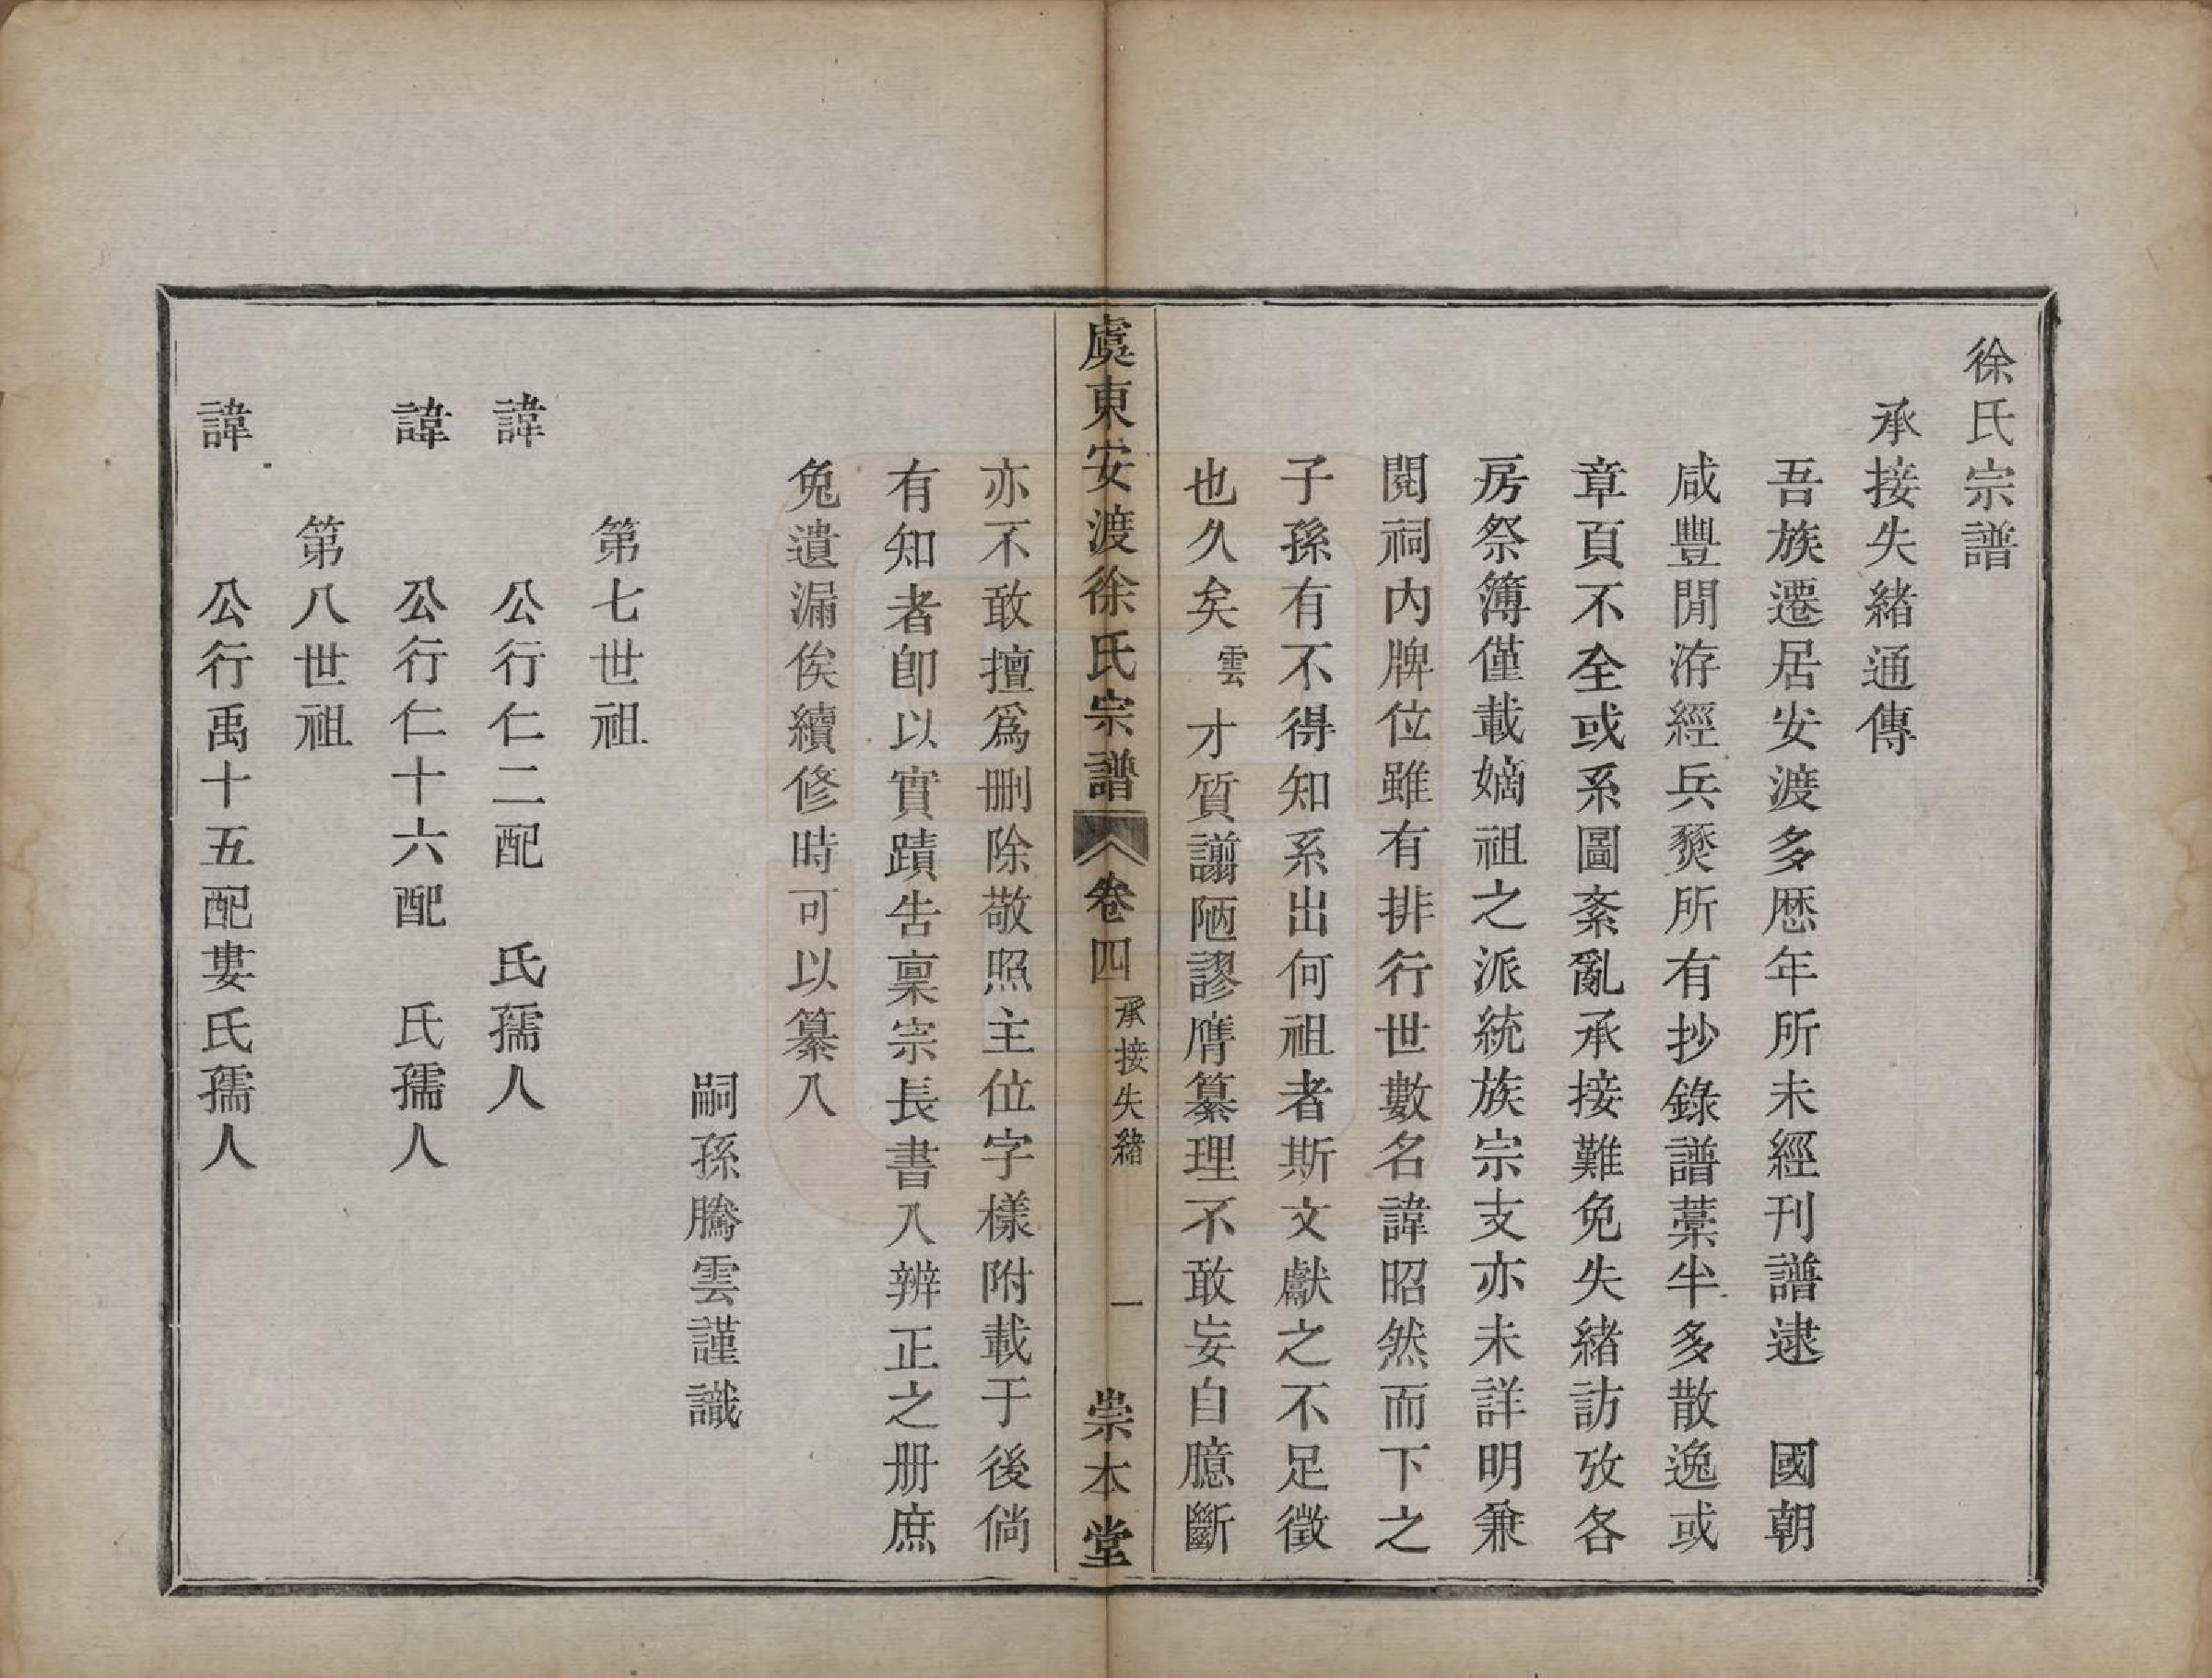 徐氏宗譜
承接失緒通傳
吾族遷居安渡多歷年所未經刊譜逮　國朝
咸豐閒洊經兵燹所有抄錄譜藁半多散逸或
章頁不全或系圖紊亂承接難免失緒訪攷各
房祭簿僅載嫡祖之派統族宗支亦未詳明兼
閱祠內牌位雖有排行世數名諱昭然而下之
子孫有不得知系出何祖者斯文獻之不足徵
也久矣雲才質謭陋謬膺纂理不敢妄自臆斷
虞東安渡徐氏宗譜　卷四　承接失緒　一　崇本堂
亦不敢擅爲刪除敬照主位字樣附載于後倘
有知者卽以實蹟告稟宗長書入辨正之册庶
免遺漏俟續修時可以纂入
嗣孫騰雲謹識
第七世祖
諱　公行仁二配　氏孺人
諱　公行仁十六配　氏孺人
第八世祖
諱　公行禹十五配婁氏孺人